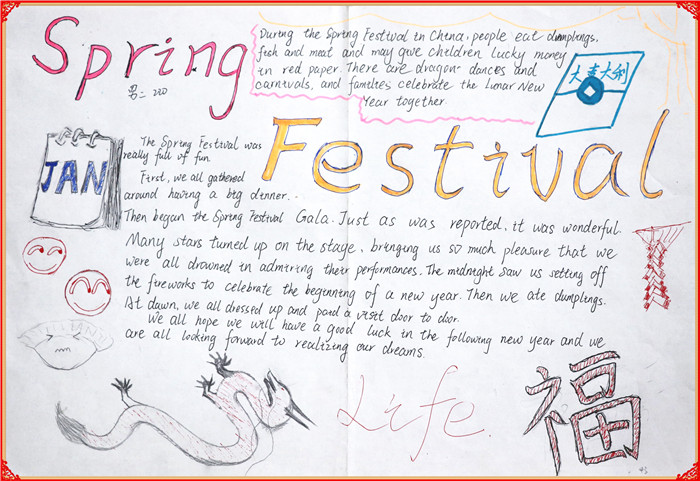 Spring
During the Spring Festival in China, people eat dumplings,
fish and meat and may give children lucky money
in red paper. There are dragon dances and
carnivals, and families celebrate the Lunar New
Year together
大吉大利
Festival
JAN
The Spring Festival was
really full of fun.
First, we all gathered
around having a big dinner.
Then began the Spring Festival Gala. Just as was reported, it was wonderful.
Many stars turned up on the stage, bringing us so much pleasure that we
were all drowned in admiring their performances. The midnight saw us setting off
the fireworks to celebrate the beginning of a new year. Then we ate dumplings.
At dawn, we all dressed up and paid a visit door to door.
We all hope we will have a good luck in the following new year and we
are all looking forward to realizing our dreams.
Life.
福